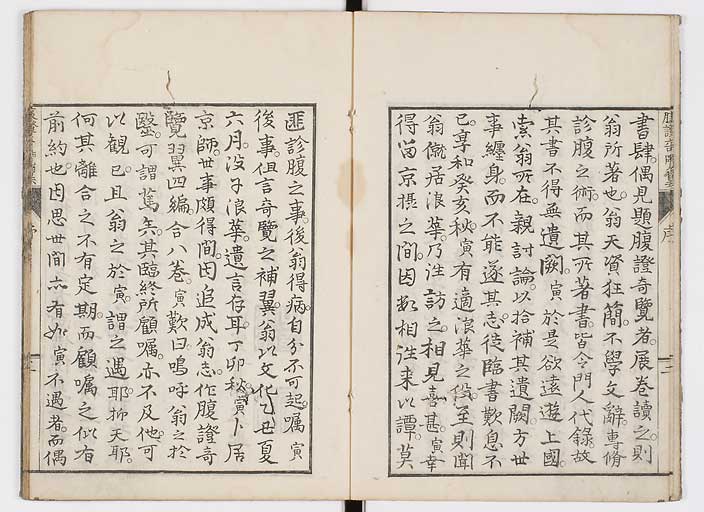 書肆偶見題腹證奇覽者展卷讀之則
翁所著也翁天資狂簡不學文辭專脩
診腹之術而其所著書皆令門人代錄故
其書不得無遺闕寅於是欲遠遊上國
索翁所在親討論以拾補其遺闕方世
事纏身而不能遂其志徒臨書歎息不
已享和癸亥秋寅有適浪華之役至則聞
翁僦居浪華乃往訪之相見喜甚寅幸
得留京摂之間因数相往来以譚莫
匪診腹之事後翁得病自分不可起属寅
後事但言奇覽之補翼翁以文化乙丑夏
六月没于浪華遺言存耳丁卯秋寅卜居
京師世事頗得間因追成翁志作腹證奇
覽翼四編合八巻寅歎曰嗚呼翁之於
毉可謂篤矣其臨終所顧嘱亦不及他可
以観已且翁之於寅謂之遇耶抑天耶
何其離合之不有定期而顧嘱之似有
前約也因思世間亦有如寅不遇者而偶
序